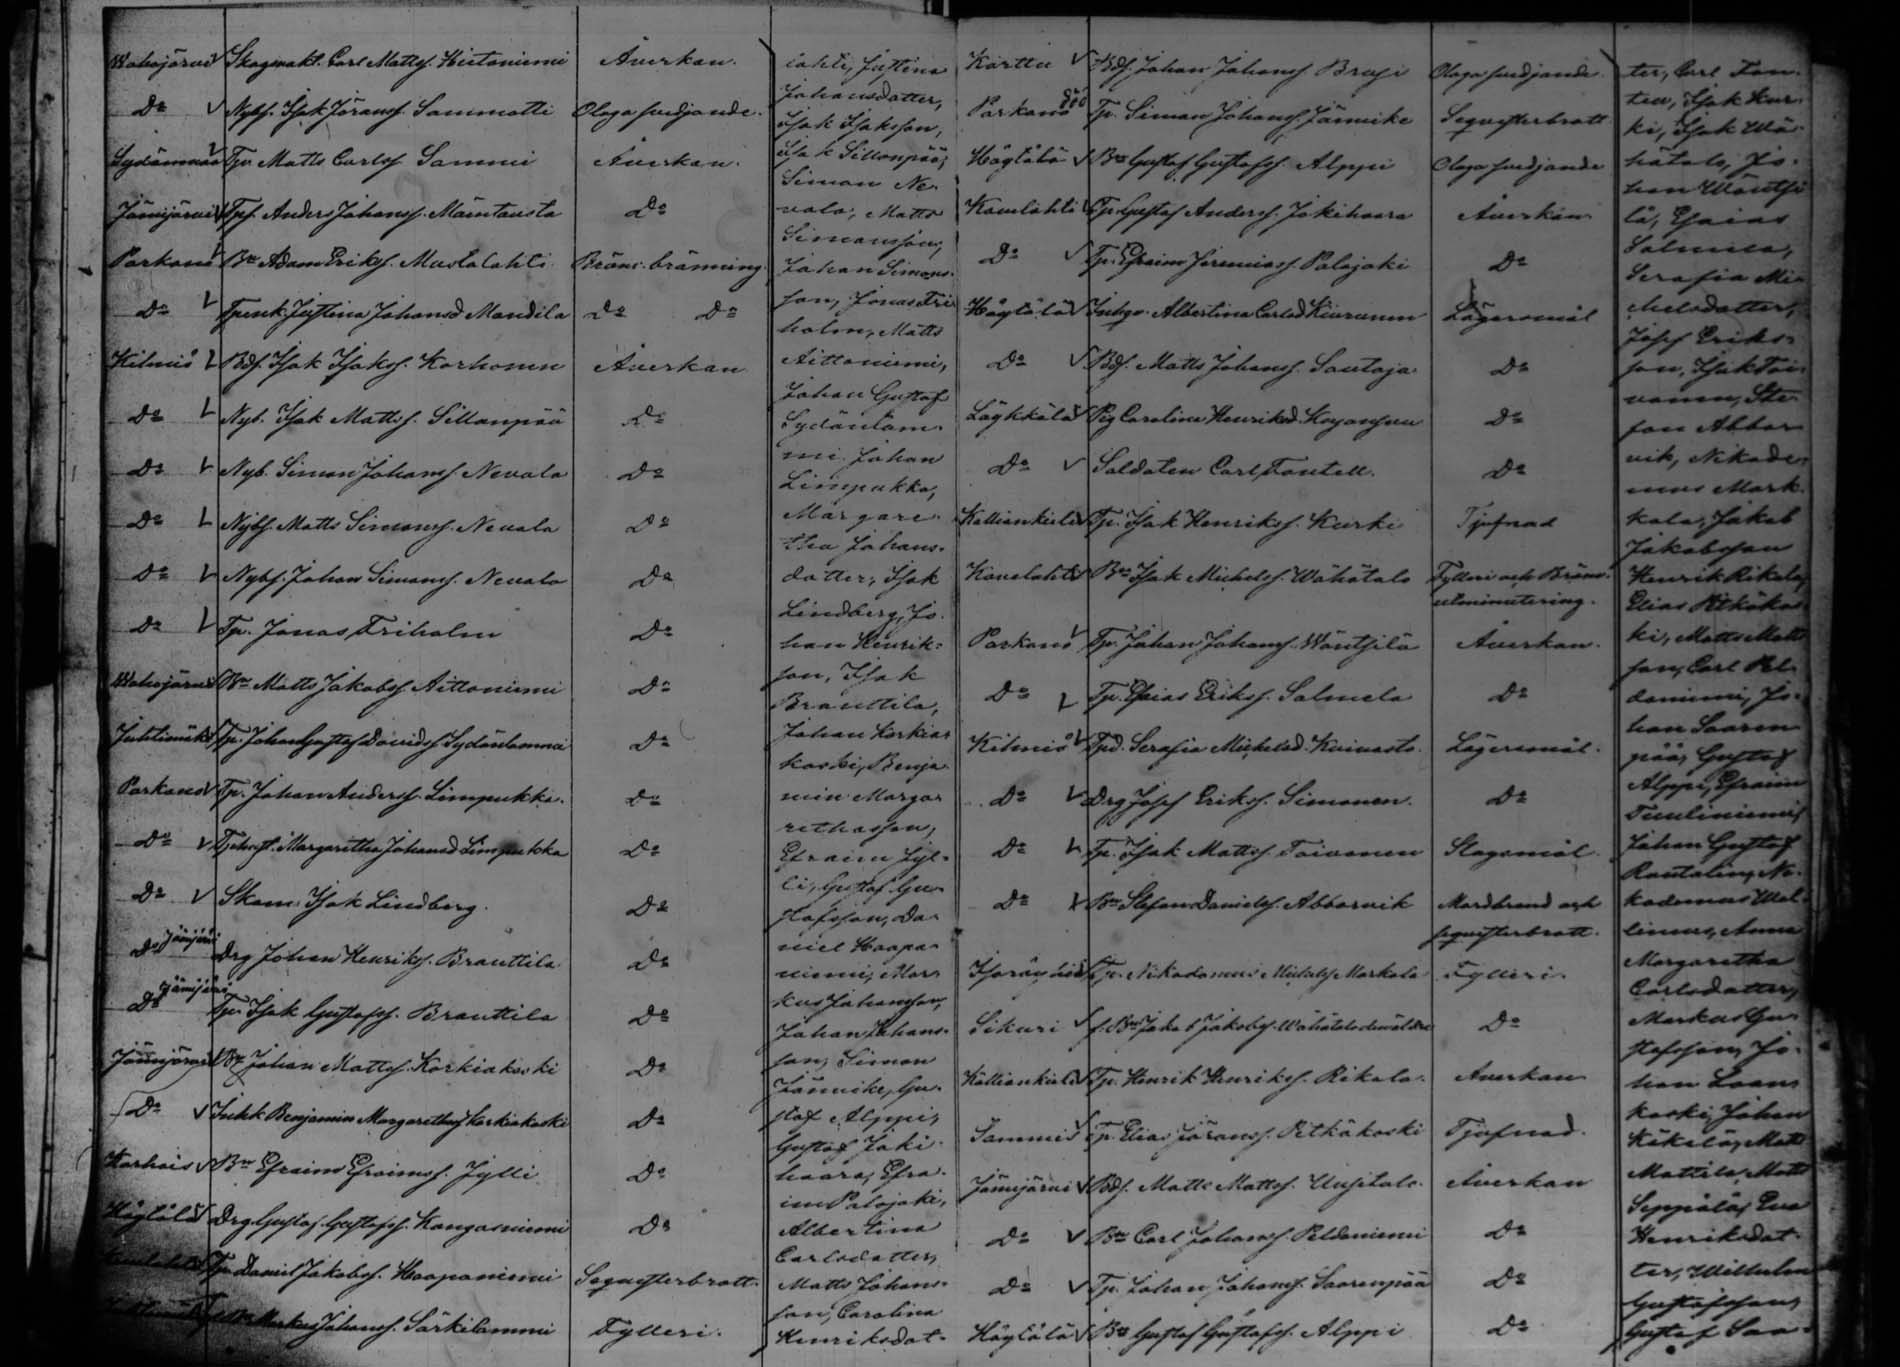 Wahojärvi Skogvakt. Carl Mattss. Hietaniemi Åverkan.
Do Nybs. Isak Göranss. Sammatti Olaga svedjande.
Sydänmaa Tp. Matts Carlss. Sammi Åverkan.
Jämijärvi Tps. Anders Johanss. Mäntausta Do
Parkano Bn Adam Erikss. Mustalahti Bränv. bränning
Do Justina Johansd Mandila Do Do
Kihniö Bds. Isak Isakss. Korhonen Åverkan
Do Nyb. Isak Mattss. Sillanpää Do
Do Nyb. Simon Johanss. Nevala Do
Do Nybs. Matts Simonss. Nevala Do
Do Nybs. Johan Simonss. Nevala Do
Do Tp. Jonas Friholm Do
Wahojärvi Bn Matts Jakobss Aittoniemi Do
Tp. Johan Gustaf Davidss Sydänlammi Do
Parkano Tp. Johan Anderss. Limpukka. Do
Do Margaretha Johansd Limpukka Do
Do Skom. Isak Lindberg. Do
Do Jämijärvi Drg Johan Henrikss. Branttila Do
Do Jämijärvi Tp. Isak Gustafss. Branttila Do
Jämijärvi Bn Johan Mattss. Korkiakoski Do
Do Benjamin Margarethass Korkiakoski Do
Karhois Bn Efraim Efraimss. Jylli Do
Högtålä Drg. Gustaf Gustafss. Kangasniemi Do
Tp. Daniel Jakobss. Haapaniemi Seqvesterbrott.
Markus Johanss. Särkilammi Fylleri.
lahti, Justina
Johansdotter,
Isak Isaksson,
Isak Sillanpää,
Simon Ne-
vala, Matts
Simonsson,
Johan Simons-
son, Jonas Fri-
holm, Matts
Aittoniemi,
Johan Gustaf
Sydänlam-
mi Johan
Limpukka,
Margare-
tha Johans-
dotter, Isak
Lindberg, Jo-
han Henrik-
son, Isak
Branttila,
Johan Korkia-
koski, Benja-
min Marga-
rethasson,
Efraim Jyl-
li, Gustaf Gu-
stafsson, Da-
niel Haapa-
niemi, Mar-
kus Johansson,
Johan Johans-
son, Simon
Jännike, Gu-
staf Alppi,
Gustaf Joki-
haara, Efra-
im Palojoki,
Albertina
Carlsdotter,
Matts Johans-
son, Carolina
Henriksdot-
Kärttu Bds. Johan Johanss. Olaga svedjande.
Parkano Tp. Simon Johanss Jännike Seqvesterbrott
Högtålä Bn Gustaf Gustafss. Alppi Olaga svedjande
Tp. Gustaf Anderss. Jokihaara Åverkan
Do Tp. Efraim Jeremiass. Palojoki Do
Högtålä Inhys. Albertina Carlsd Kiviranen Lägersmål
Do Bds. Matts Johanss. Sautaja Do
Pig Carolina Henriksd. Do
Do Soldaten Carl Fontell. Do
Tp. Isak Henrikss. Kurki Tjufnad
Bn Isak Michelss. Wähätalo Fylleri och Bränv.
utminutering.
Parkano Tp. Johan Johanss. Wäntsilä Åverkan.
Do Tp. Esaias Erikss. Salmela Do
Kihniö Tpd. Serafia Michelsd. Lägersmål.
Do Drg Josef Erikss. Simonen. Do
Do Tp. Isak Mattss. Toivonen Slagsmål
Do Bn Stefan Danielss. Abborvik Mordbrand och
seqvesterbrott.
Tp. Nikodemus Michelss Markala Fylleri.
Sikuri Jakob Jakobss. Do
Tp. Henrik Henrikss. Rikala. Åverkan
Sammi Tp. Elias Göranss. Pitkäkoski Tjufnad.
Jämijärvi Bds. Matts Mattss. Uusitalo. Åverkan
Do Bn Carl Johanss. Peldoniemi Do
Do Tp. Johan Johanss. Saarenpää Do
Högtålä Bn Gustaf Gustafss. Alppi Do
ter, Carl Fon-
tell, Isak Kur-
ki, Isak Wä-
hätalo, Jo-
han Wäntsi-
lä, Esaias
Salmela,
Serafia Mi-
chelsdotter,
Josef Eriks-
son, Isak Toi-
vonen, Ste-
fan Abbor-
vik, Nikode-
mus Mark-
kala, Jakob
Jakobsson
Henrik Rikala,
Elias Pitkäkos-
ki, Matts Matts-
son, Carl Pel-
doniemi, Jo-
han Saaren-
pää, Gustaf
Alppi, Efraim
Tuuliniemi,
Johan Gustaf
Rantalin, Ni-
kodemus Wal-
linus, Anna
Margaretha
Carlsdotter,
Markus Gu-
stafsson, Jo-
han Laan-
koski, Johan
Käkilä, Matts
Mattila, Matts
Seppälä, Eva
Henriksdot-
ter, Wilhelm
Gustafsson,
Gustaf Saa-